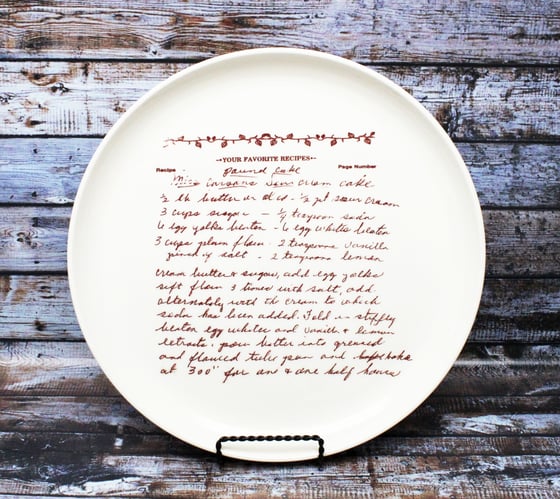 YOUR FAVORITE RECIPES
Recipe Pound Cake Page Number
Mrs Carsons Sour Cream Cake
½ lb butter or oleo - ½ pt sour cream
3 cups sugar - ¼ teaspoon soda
6 egg yolks beaten - 6 egg whites beaten
3 cups plain flour - 2 teaspoons vanilla
pinch of salt - 2 teaspoons lemon
cream butter & sugar, add egg yolks
sift flour 3 times with salt, add
alternately with the cream to which
soda has been added. Fold in stiffly
beaten egg whites and vanilla & lemon
extracts. pour batter into greased
and floured tube pan and bake
at 300° for one & one half hours